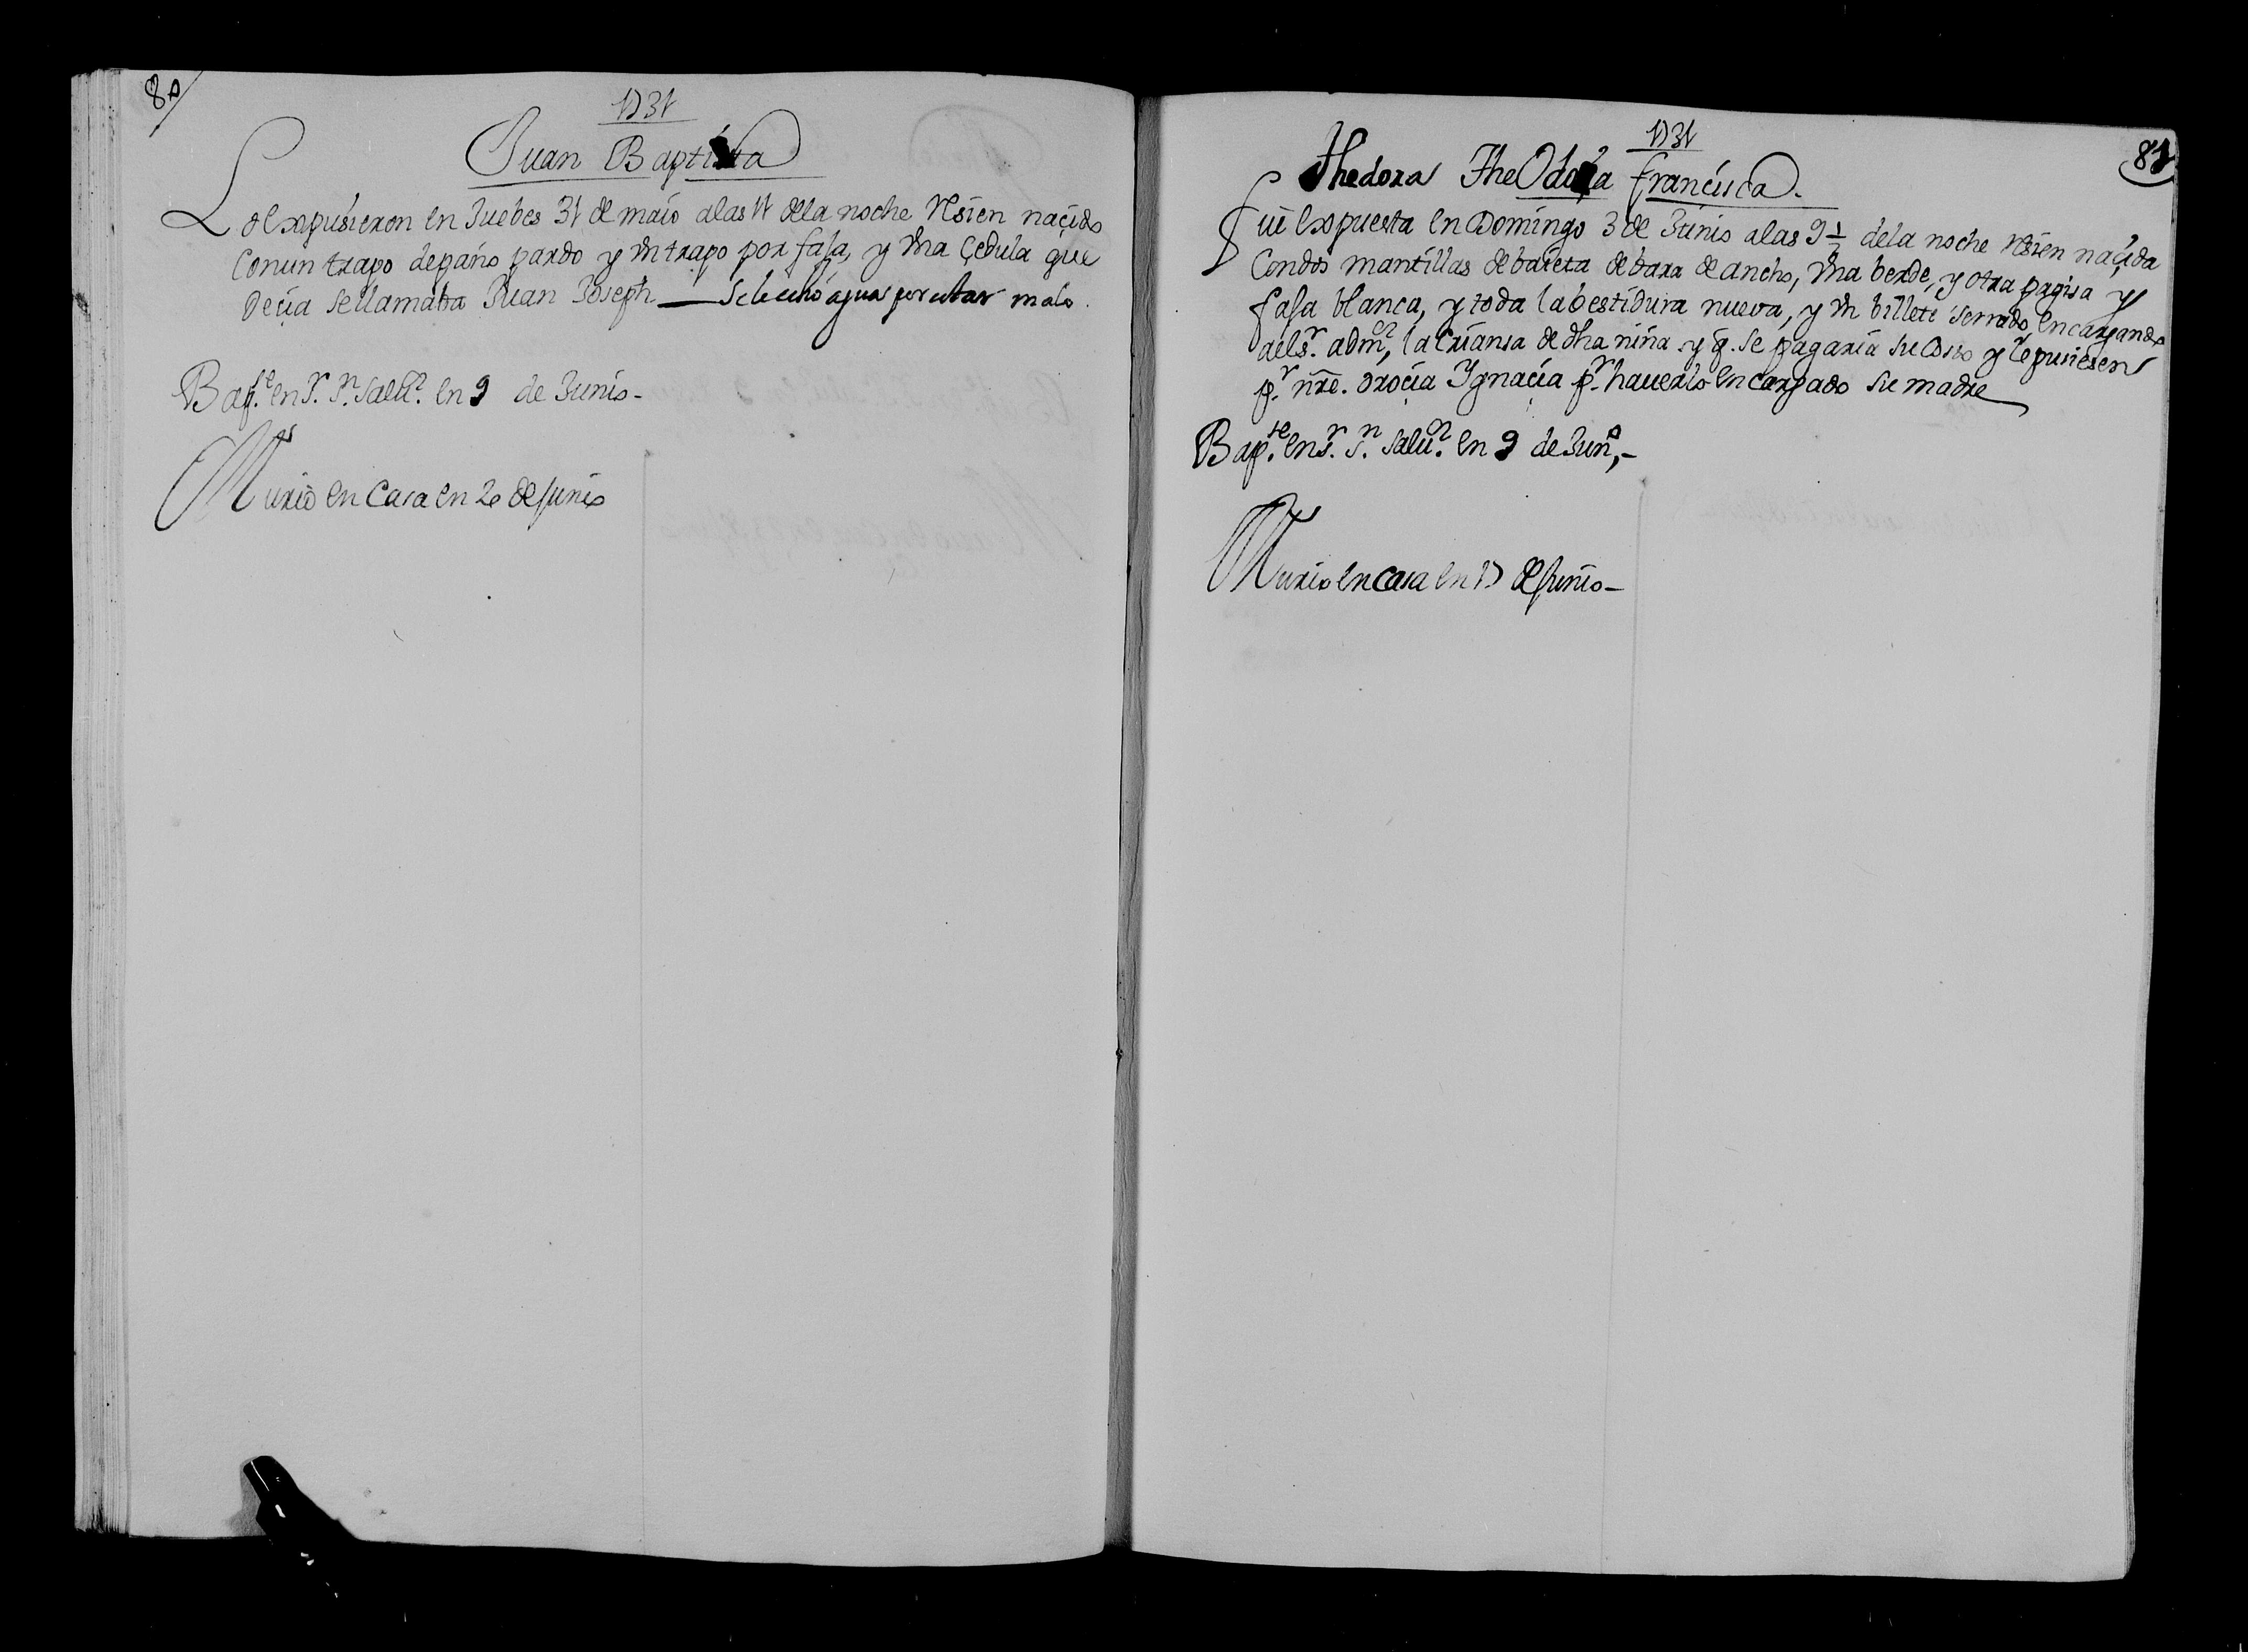 80
1731
Juan Baptista
Lo expusieron en Juebes 31 de maio a las 11 de la noche Rsien naçido
Con un trapo de paño pardo y Vn trapo por faja, y Vna Çedula que
Deçia se llamaba Juan Joseph — Se le echo agua por estar malo.
Bap.se en S.r S.n Salu.or en 9 de Junio-
Murio en Casa en 20 de Junio
81
1731
Thedora Theodora francisca.
fue expuesta en Domingo 3 de Junio a las 9 1/2 de la noche Rsien naçida
Con dos mantillas de baieta de bara de ancho, Vna berde, y otra pagisa y
faja blanca, y toda la bestidura nueva, y Vn billete serrado, encargando
a el s.r adm.or, la Criansa de dha niña y q. se pagaria su Costo y le pusiesen
p.r nre. oroçia Ygnaçia p.r hauerlo encargado su madre
Bap.se en S.r S.n Salu.or en 9 de Jun.o,-
Murio en Casa en 17 de Junio-